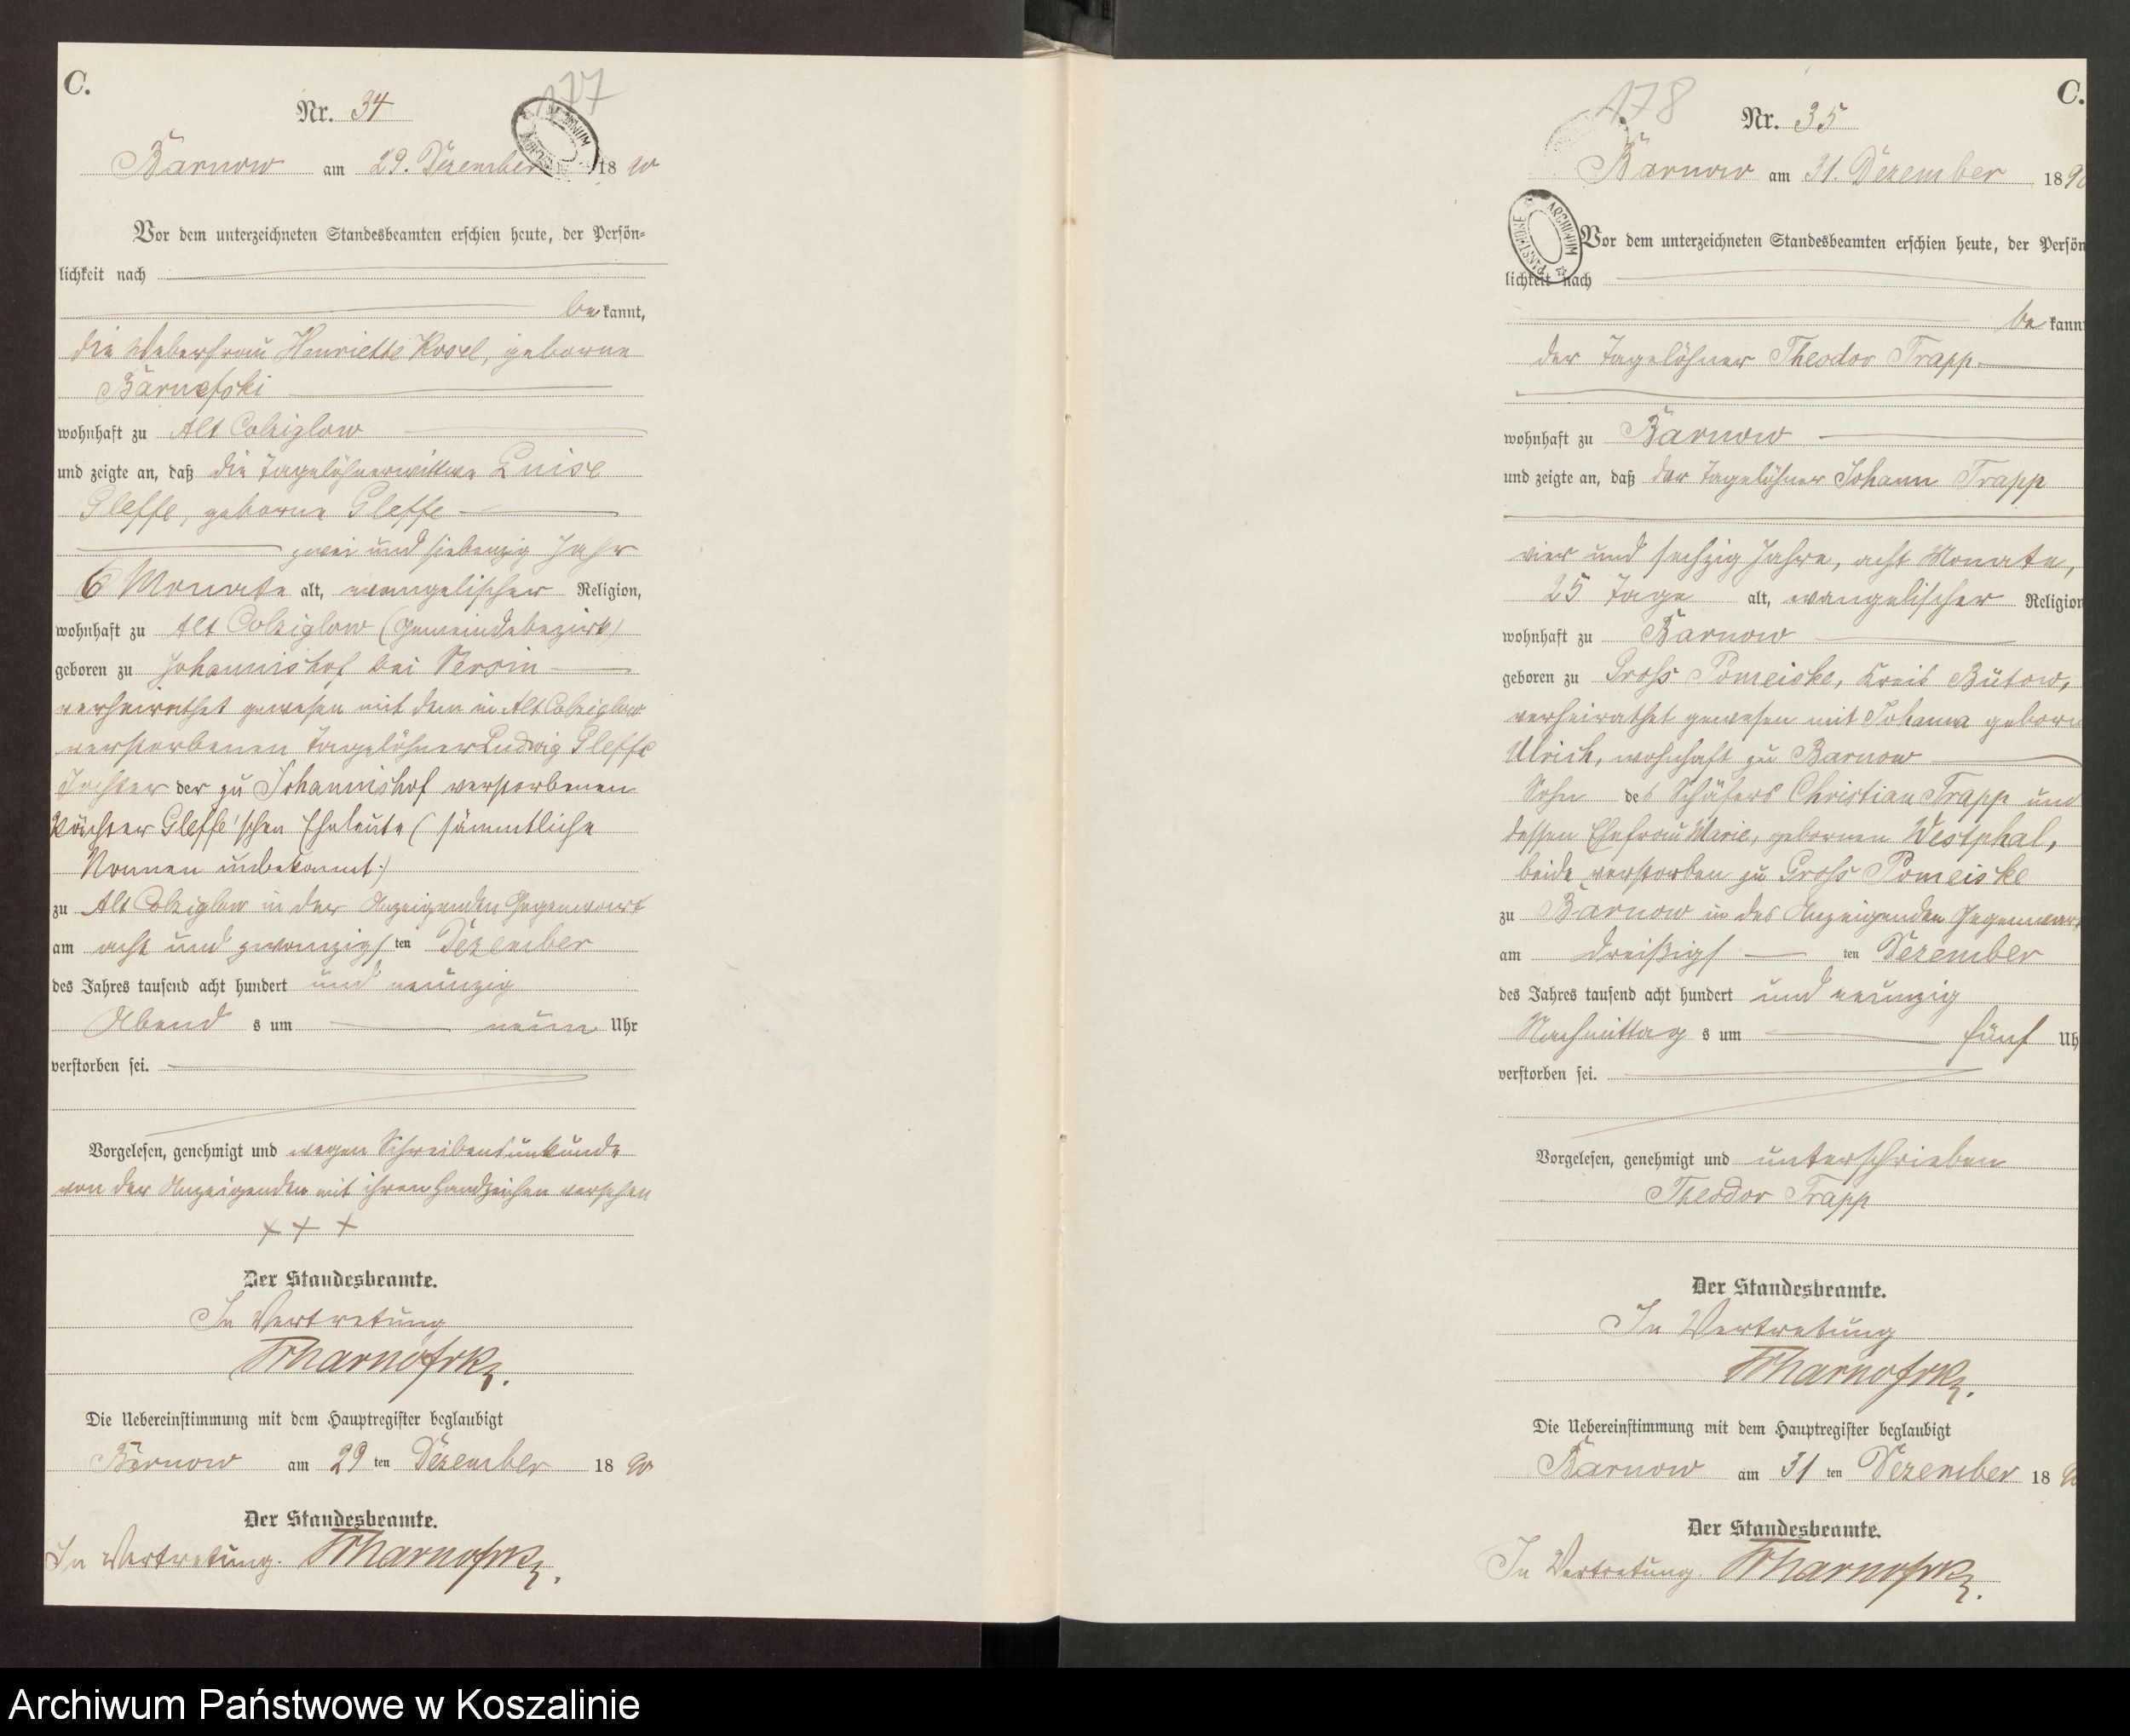 C.
177
Nr. 34
Barnow am 29. Dezember 1890
Vor dem unterzeichneten Standesbeamten erschien heute, der Persön-
lichkeit nach
bekannt,
die Weberfrau Henriette Kosel, geborne
wohnhaft zu Alt Colziglow
und zeigte an, daß die Tagelöhnerwittwe Luise
Gleffe, geborne Gleffe
zwei und siebenzig Jahr
6 Monate alt, evangelischer Religion,
wohnhaft zu Alt Colziglow (Gemeindebezirk)
geboren zu Johannishof bei Versin
verheirathet gewesen mit dem in Alt Colziglow
verstorbenen Tagelöhner Ludwig Gleffe
Tochter der zu Johannishof verstorbenen
Pächter Gleffe'schen Eheleute (sämmtliche
Namen unbekannt.)
zu Alt Colziglow in der Anzeigenden Gegenwart
am acht und zwanzigsten Dezember
des Jahres tausend acht hundert und neunzig
Abends um neun Uhr
verstorben sei.
Vorgelesen, genehmigt und wegen Schreibensunkunde
von der Anzeigenden mit ihren Handzeichen versehen
+ + +
Der Standesbeamte.
In Vertretung
Die Uebereinstimmung mit dem Hauptregister beglaubigt
Barnow am 29ten Dezember 1890
Der Standesbeamte.
In Vertretung.
C.
178
Nr. 35
Barnow am 31. Dezember 1890
ARCHIWUM
Vor dem unterzeichneten Standesbeamten erschien heute, der Persön
lichkeit nach
bekann
der Tagelöhner Theodor Trapp
wohnhaft zu Barnow
und zeigte an, daß der Tagelöhner Johann Trapp
vier und sechzig Jahre, acht Monate,
25 Tage alt, evangelischer Religion
wohnhaft zu Barnow
geboren zu Gross Pomeiske, Kreis Bütow,
verheirathet gewesen mit Johanna geborn
Ulrich, wohnhaft zu Barnow
Sohn des Schäfers Christian Trapp und
dessen Ehefrau Marie, gebornen Westphal,
beide verstorben zu Gross Pomeiske
zu Barnow in des Anzeigenden Gegenwart
am dreißigsten Dezember
des Jahres tausend acht hundert und neunzig
Nachmittags um fünf Uh
verstorben sei.
Vorgelesen, genehmigt und unterschrieben
Theodor Trapp
Der Standesbeamte.
In Vertretung
Die Uebereinstimmung mit dem Hauptregister beglaubigt
Barnow am 31ten Dezember 1890
Der Standesbeamte.
In Vertretung.
Archiwum Państwowe w Koszalinie